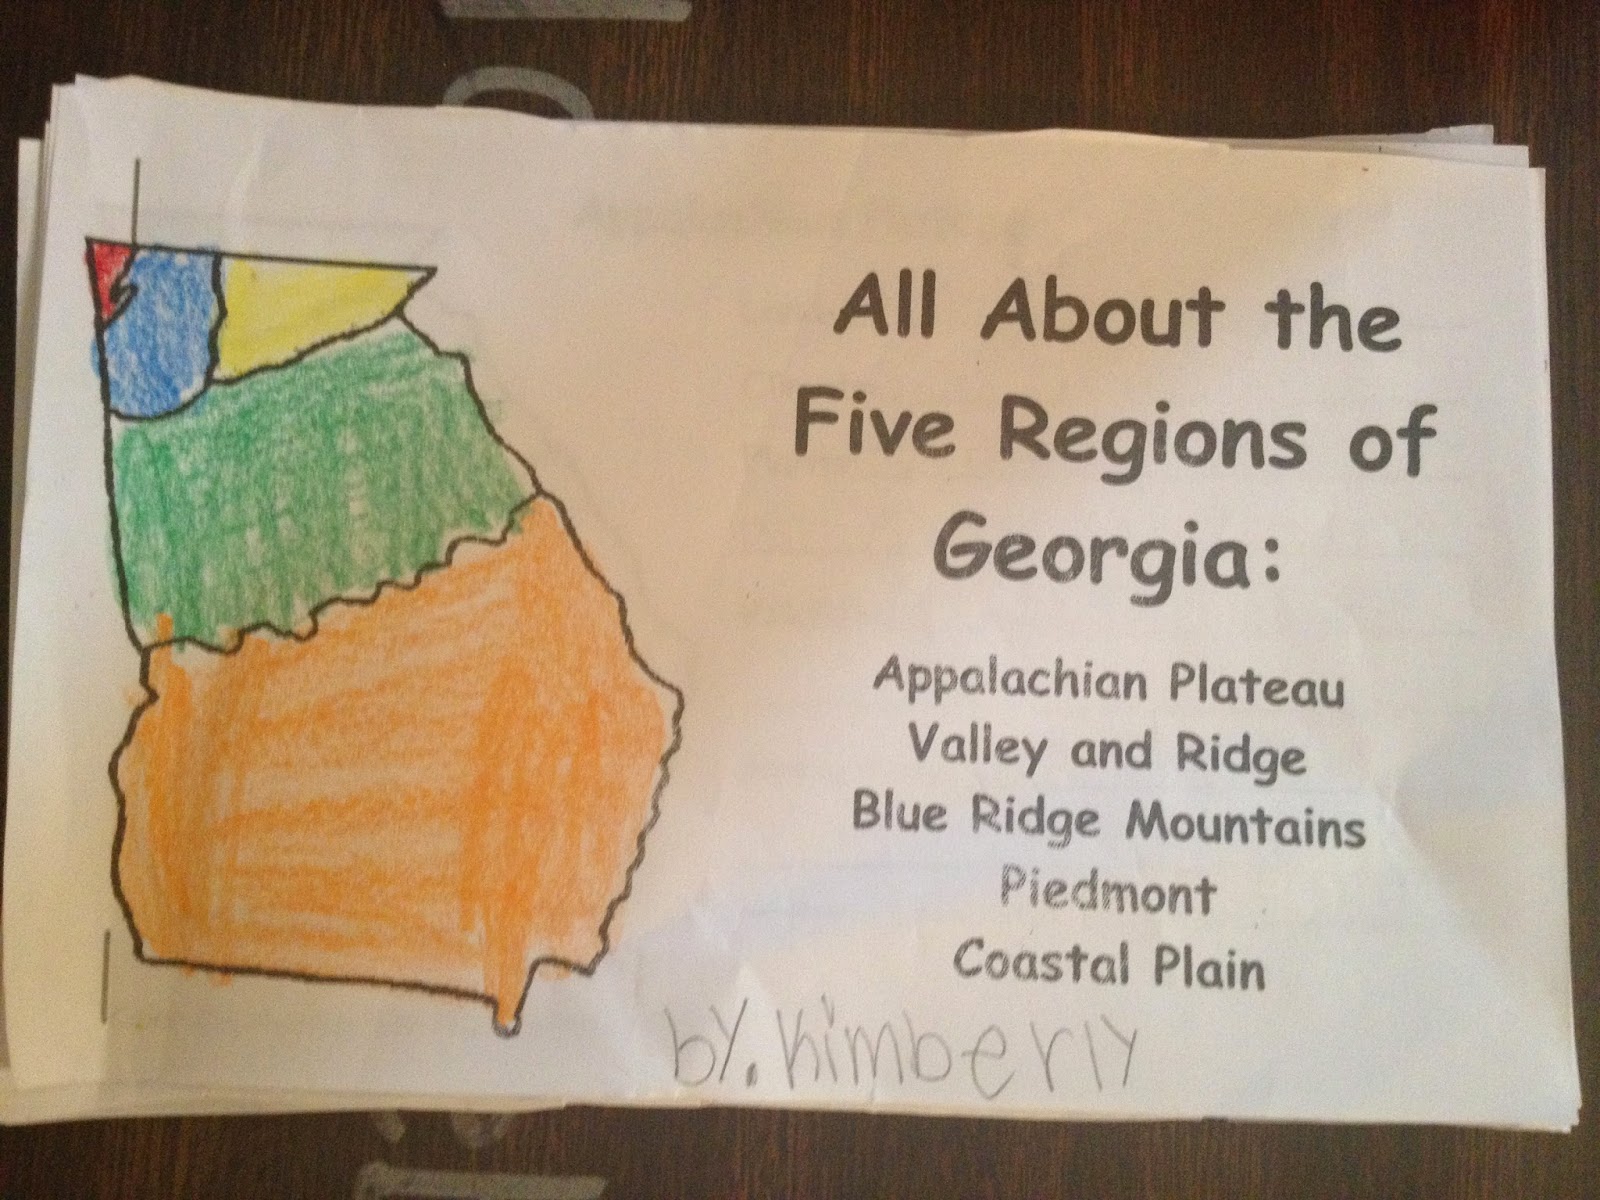 All About the
Five Regions of
Georgia:
Appalachian Plateau
Valley and Ridge
Blue Ridge Mountains
Piedmont
Coastal Plain
by. Kimberly